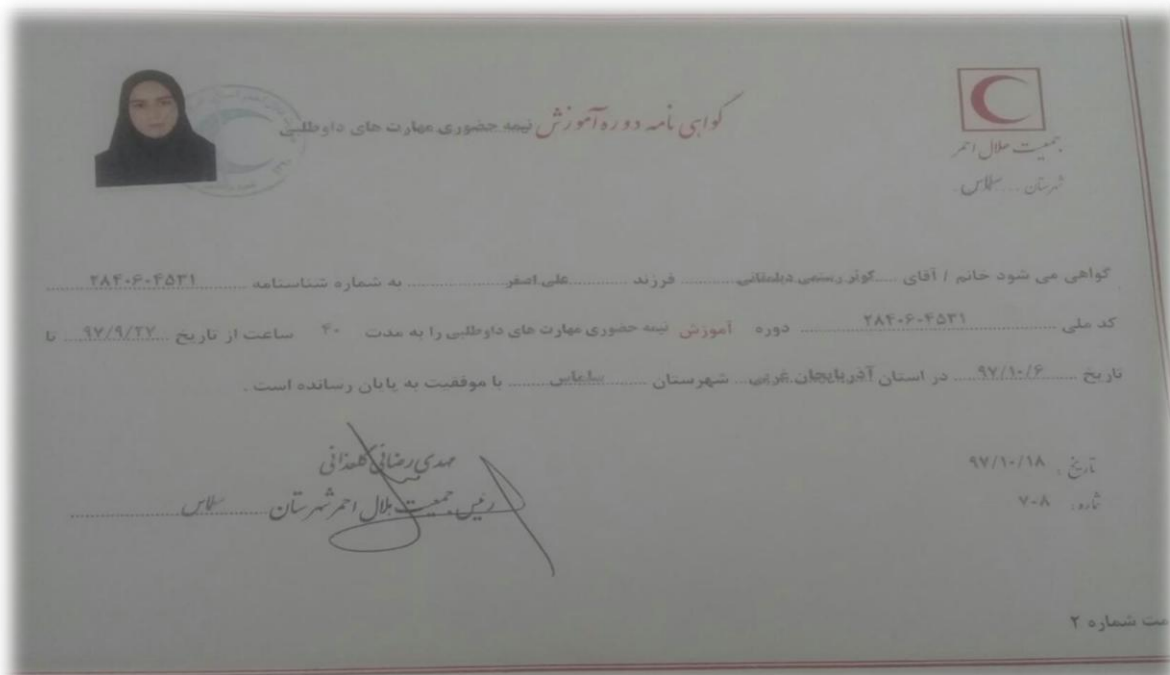 جمعیت هلال احمر
شهرستان ..... سلماس
گواهی نامه دوره آموزش نیمه حضوری مهارت های داوطلبی
گواهی می شود خانم / آقای ..... کوثر رستمی دیلمقانی ..... فرزند ..... علی اصغر ..... به شماره شناسنامه ..... ۲۸۴۰۶۰۴۵۳۱
کد ملی ..... ۲۸۴۰۶۰۴۵۳۱ ..... دوره آموزش نیمه حضوری مهارت های داوطلبی را به مدت ۴۰ ساعت از تاریخ ..... ۹۷/۹/۲۷ ..... تا
تاریخ ..... ۹۷/۱۰/۶ ..... در استان آذربایجان غربی ... شهرستان ..... سلماس ..... با موفقیت به پایان رسانده است .
تاریخ : ۹۷/۱۰/۱۸
شماره : ۷۰۸
مهدی رضائی
رئیس جمعیت هلال احمر شهرستان ..... سلماس
مت شماره ۲